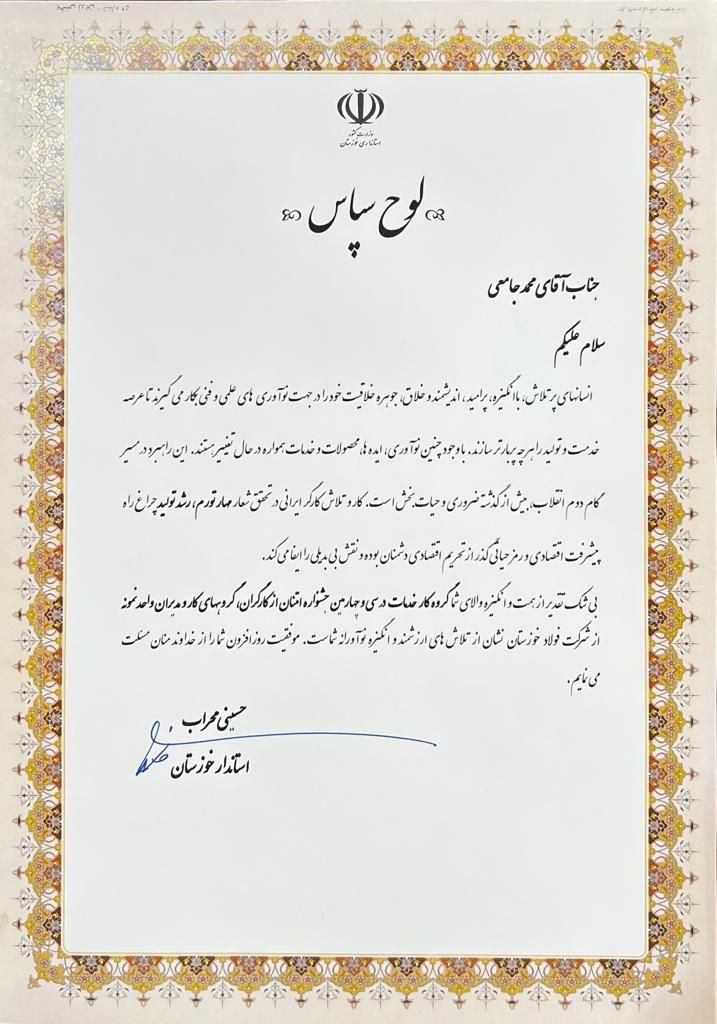 وزارت کشور
استانداری خوزستان
لوح سپاس
جناب آقای محمد جامعی
سلام علیکم
انسانهای پرتلاش، باانگیزه، پرامید، اندیشمند و خلاق، جوهره خلاقیت خود را در جهت نوآوری های علمی و فنی بکار می گیرند تا عرصه
خدمت و تولید را هر چه پربارتر سازند. با وجود چنین نوآوری، ایده ها، محصولات و خدمات همواره در حال تغییر هستند. این راهبرد در مسیر
گام دوم انقلاب، بیش از گذشته ضروری و حیات بخش است. کار و تلاش کارگر ایرانی در تحقق شعار مهار تورم، رشد تولید چراغ راه
پیشرفت اقتصادی و رمز حیاتی گذر از تحریم اقتصادی دشمنان بوده و نقش بی بدیلی را ایفا می کند.
بی شک تقدیر از همت و انگیزه والای شما گروه کار خدمات در سی و چهارمین جشنواره امتنان از کارگران، گروههای کار و مدیران واحد نمونه
از شرکت فولاد خوزستان نشان از تلاش های ارزشمند و انگیزه نوآورانه شماست. موفقیت روزافزون شما را از خداوند منان مسئلت
می نمایم.
حسینی محراب
استاندار خوزستان